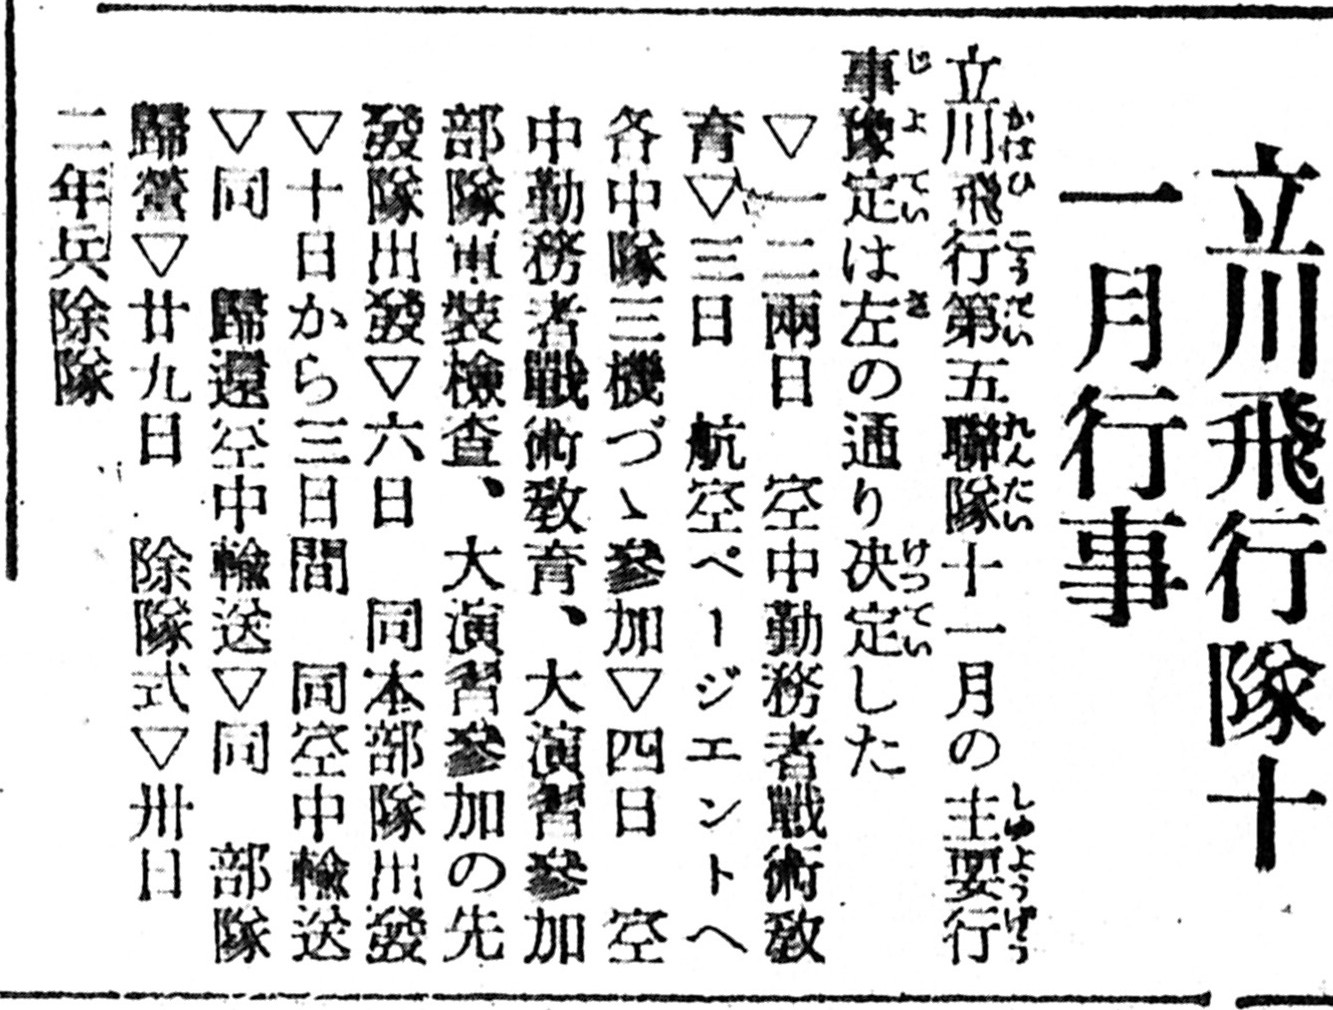 立川飛行隊十
一月行事
立川飛行第五聯隊十一月の主要行
事豫定は左の通り决定した
▽一二兩日　空中勤務者戰術敎
育▽三日　航空ページエントへ
各中隊三機づゝ參加▽四日　空
中勤務者戰術敎育、大演習參加
部隊軍裝檢查、大演習參加の先
發隊出發▽六日　同本部隊出發
▽十日から三日間　同空中輸送
▽同　歸還空中輸送▽同　部隊
歸營▽廿九日　除隊式▽卅日
二年兵除隊